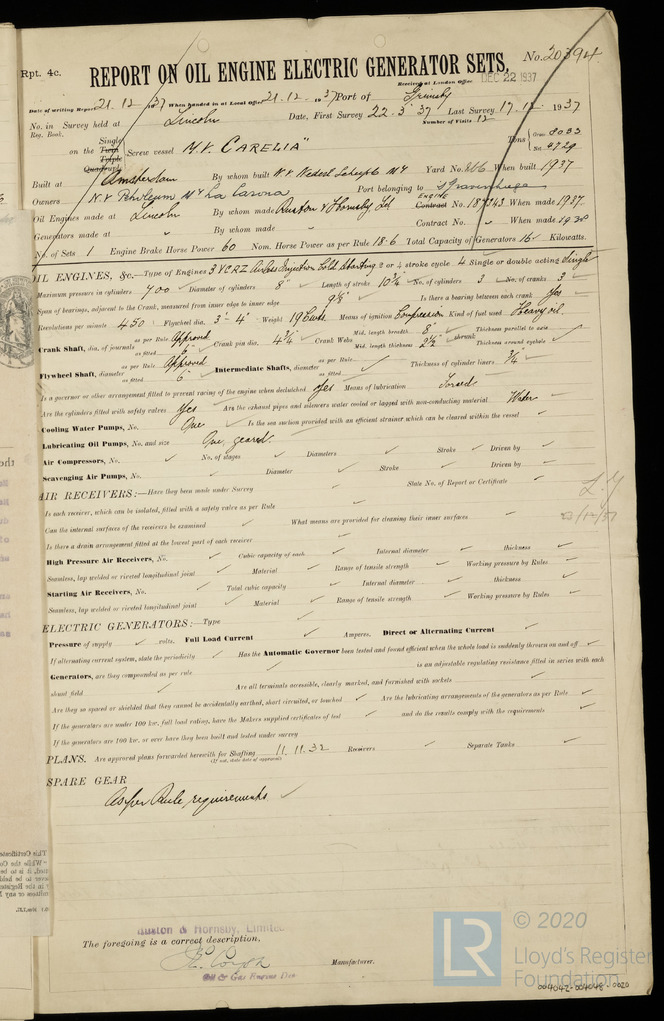 Rpt. 4c.
No. 20394
REPORT ON OIL ENGINE ELECTRIC GENERATOR SETS.
Received at London Office DEC 22 1937
Date of writing Report 21.12.1937 When handed in at Local Office 21.12.1937 Port of Grimsby
No. in Survey held at Lincoln Date, First Survey 22.3.37 Last Survey 17.12.1937
Reg. Book. Number of Visits 12
on the Single Twin Triple Quadruple Screw vessel M.V. "CARELIA" Tons Gross 8083 Net
Built at Amsterdam By whom built Yard No. When built 1937
Owners N.V. Petroleum My La Corona Port belonging to s'Gravenhage
Oil Engines made at Lincoln By whom made Ruston & Hornsby Ltd ENGINE Contract No. 187343 When made 1937
Generators made at " By whom made Contract No. When made 1930
No. of Sets 1 Engine Brake Horse Power 60 Nom. Horse Power as per Rule 18.6 Total Capacity of Generators 16 Kilowatts.
OIL ENGINES, &c.—Type of Engines 3 VCRZ Airless Injection Cold Starting 2 or 4 stroke cycle 4 Single or double acting Single
Maximum pressure in cylinders 700 Diameter of cylinders 8" Length of stroke 10 3/4" No. of cylinders 3 No. of cranks 3
Span of bearings, adjacent to the Crank, measured from inner edge to inner edge 9 1/2" Is there a bearing between each crank Yes
Revolutions per minute 450 Flywheel dia. 3'-4" Weight 19 Cwts. Means of ignition Compression Kind of fuel used Heavy oil.
Crank Shaft, dia. of journals as per Rule Approved as fitted 6" Crank pin dia. 4 3/4" Crank Webs Mid. length breadth 8" Mid. length thickness 2 3/4" shrunk Thickness parallel to axis Thickness around eyehole
Flywheel Shaft, diameter as per Rule Approved as fitted 6" Intermediate Shafts, diameter as per Rule as fitted Thickness of cylinder liners 3/4"
Is a governor or other arrangement fitted to prevent racing of the engine when declutched Yes Means of lubrication Forced
Are the cylinders fitted with safety valves Yes Are the exhaust pipes and silencers water cooled or lagged with non-conducting material Water
Cooling Water Pumps, No. One Is the sea suction provided with an efficient strainer which can be cleared within the vessel
Lubricating Oil Pumps, No. and size One, geared.
Air Compressors, No. No. of stages Diameters Stroke Driven by
Scavenging Air Pumps, No. Diameter Stroke Driven by
AIR RECEIVERS:—Have they been made under Survey State No. of Report or Certificate
Is each receiver, which can be isolated, fitted with a safety valve as per Rule
Can the internal surfaces of the receivers be examined What means are provided for cleaning their inner surfaces
Is there a drain arrangement fitted at the lowest part of each receiver
High Pressure Air Receivers, No. Cubic capacity of each Internal diameter thickness
Seamless, lap welded or riveted longitudinal joint Material Range of tensile strength Working pressure by Rules
Starting Air Receivers, No. Total cubic capacity Internal diameter thickness
Seamless, lap welded or riveted longitudinal joint Material Range of tensile strength Working pressure by Rules
ELECTRIC GENERATORS:—Type
Pressure of supply volts. Full Load Current Amperes. Direct or Alternating Current
If alternating current system, state the periodicity Has the Automatic Governor been tested and found efficient when the whole load is suddenly thrown on and off
Generators, are they compounded as per rule is an adjustable regulating resistance fitted in series with each
shunt field Are all terminals accessible, clearly marked, and furnished with sockets
Are they so spaced or shielded that they cannot be accidentally earthed, short circuited, or touched Are the lubricating arrangements of the generators as per Rule
If the generators are under 100 kw. full load rating, have the Makers supplied certificates of test and do the results comply with the requirements
If the generators are 100 kw. or over have they been built and tested under survey
PLANS. Are approved plans forwarded herewith for Shafting 11.11.32 Receivers Separate Tanks
(If not, state date of approval)
SPARE GEAR
As per Rule requirements.
Ruston & Hornsby, Limited
The foregoing is a correct description,
Manufacturer.
Oil & Gas Engine Dept
LR
© 2020
Lloyd's Register
Foundation
004042-004048-0020